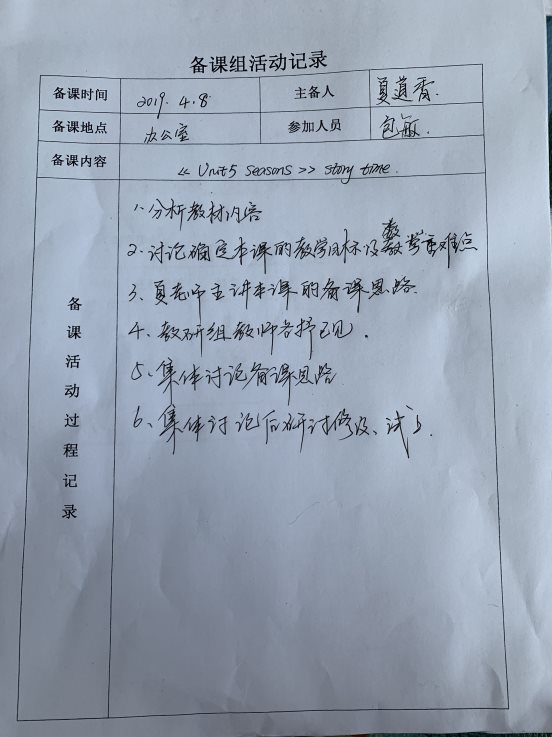 备课组活动记录
备课时间 2019.4.8 主备人 夏道香.
备课地点 办公室 参加人员 包敏.
备课内容 《Unit5 seasons》 story time.
备课活动过程记录
1、分析教材内容
2、讨论确定本课的教学目标及教学重难点
3、夏老师主讲本课的备课思路.
4、教研组教师各抒己见.
5、集体讨论备课思路
6、集体讨论后研讨修改、试上.